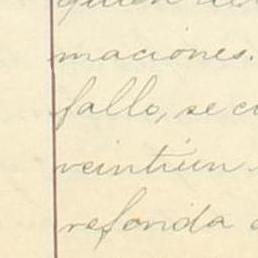 quien
maciones.
fallo, se
veintiún
refonda